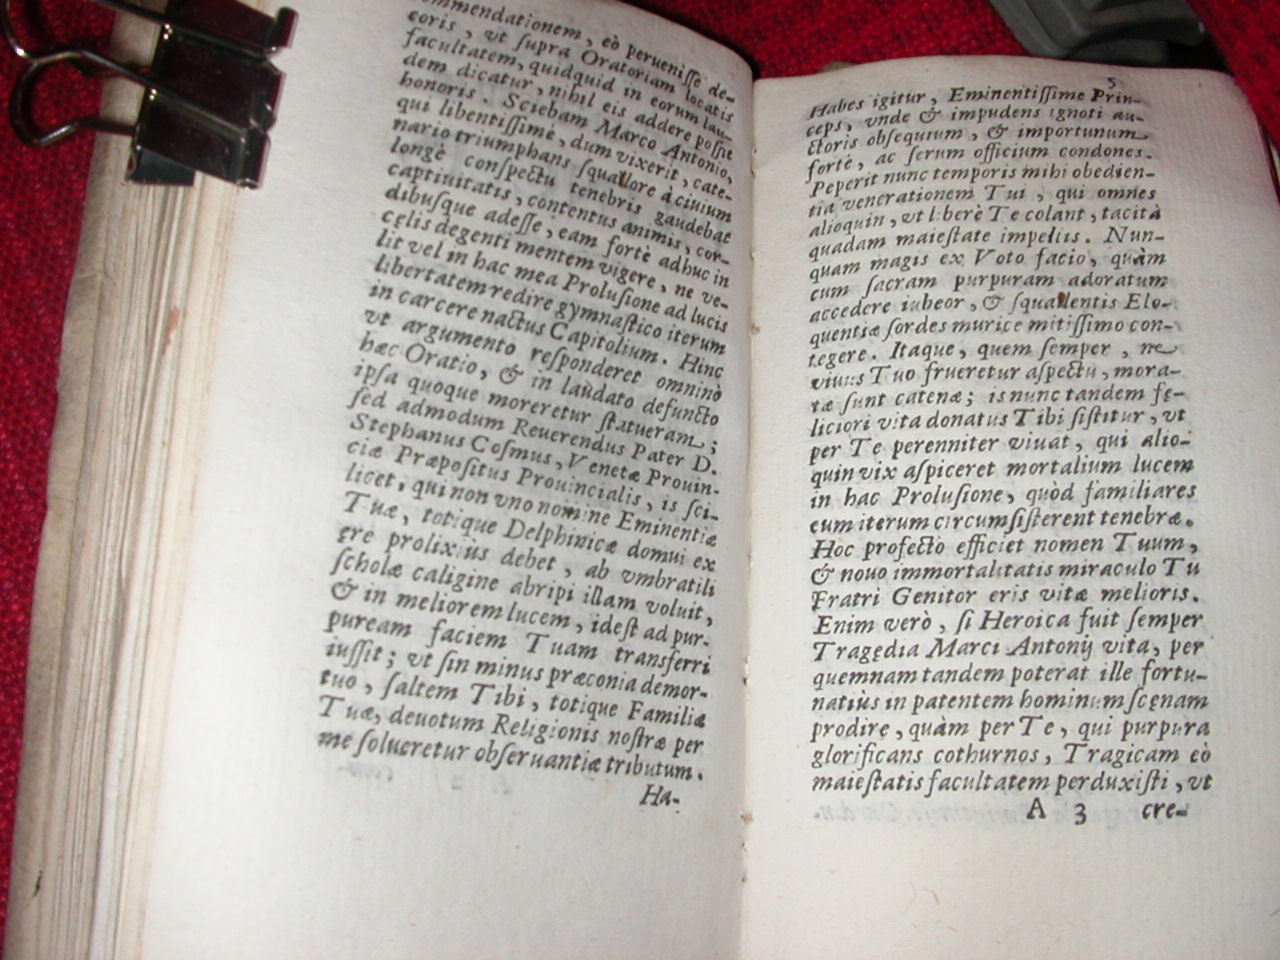 mmendationem, eò peruenisse de-
coris, vt supra Oratoriam locatis
facultatem, quidquid in eorum lau-
dem dicatur, nihil eis addere possit
honoris. Sciebam Marco Antonio,
qui libentissimè, dum vixerit, cate-
nario triumphans squallore à ciuium
longè conspectu tenebris gaudebat
captiuitatis, contentus animis, cor-
dibusque adesse, eam fortè adhuc in
cęlis degenti mentem vigere, ne ve-
lit vel in hac mea Prolusione ad lucis
libertatem redire gymnastico iterum
in carcere nactus Capitolium. Hinc
vt argumento responderet omninò
hæc Oratio, & in laudato defuncto
ipsa quoque moreretur statueram;
sed admodum Reuerendus Pater D.
Stephanus Cosmus, Venetæ Prouin-
ciæ Præpositus Prouincialis, is sci-
licet, qui non vno nomine Eminentiæ
Tuæ, totique Delphinicæ domui ex
ęre prolixiùs debet, ab vmbratili
scholæ caligine abripi illam voluit,
& in meliorem lucem, idest ad pur-
puream faciem Tuam transferri
iussit; vt sin minus præconia demor-
tuo, saltem Tibi, totique Familiæ
Tuæ, deuotum Religionis nostræ per
me solueretur obseruantiæ tributum.
Ha-
5
Habes igitur, Eminentissime Prin-
ceps, vnde & impudens ignoti au-
ctoris obsequium, & importunum
fortè, ac serum officium condones.
Peperit nunc temporis mihi obedien-
tia venerationem Tui, qui omnes
alioquin, vt liberè Te colant, tacità
quadam maiestate impellis. Nun-
quam magis ex Voto facio, quàm
cum sacram purpuram adoratum
accedere iubeor, & squallentis Elo-
quentiæ sordes murice mitissimo con-
tegere. Itaque, quem semper, ne
viuus Tuo frueretur aspectu, mora-
tæ sunt catenæ; is nunc tandem fę-
liciori vita donatus Tibi sistitur, vt
per Te perenniter viuat, qui alio-
quin vix aspiceret mortalium lucem
in hac Prolusione, quòd familiares
eum iterum circumsisterent tenebræ.
Hoc profectò efficiet nomen Tuum,
& nouo immortalitatis miraculo Tu
Fratri Genitor eris vitæ melioris.
Enim verò, si Heroica fuit semper
Tragędia Marci Antonij vita, per
quemnam tandem poterat ille fortu-
natiùs in patentem hominum scęnam
prodire, quàm per Te, qui purpura
glorificans cothurnos, Tragicam eò
maiestatis facultatem perduxisti, vt
A 3 cre-